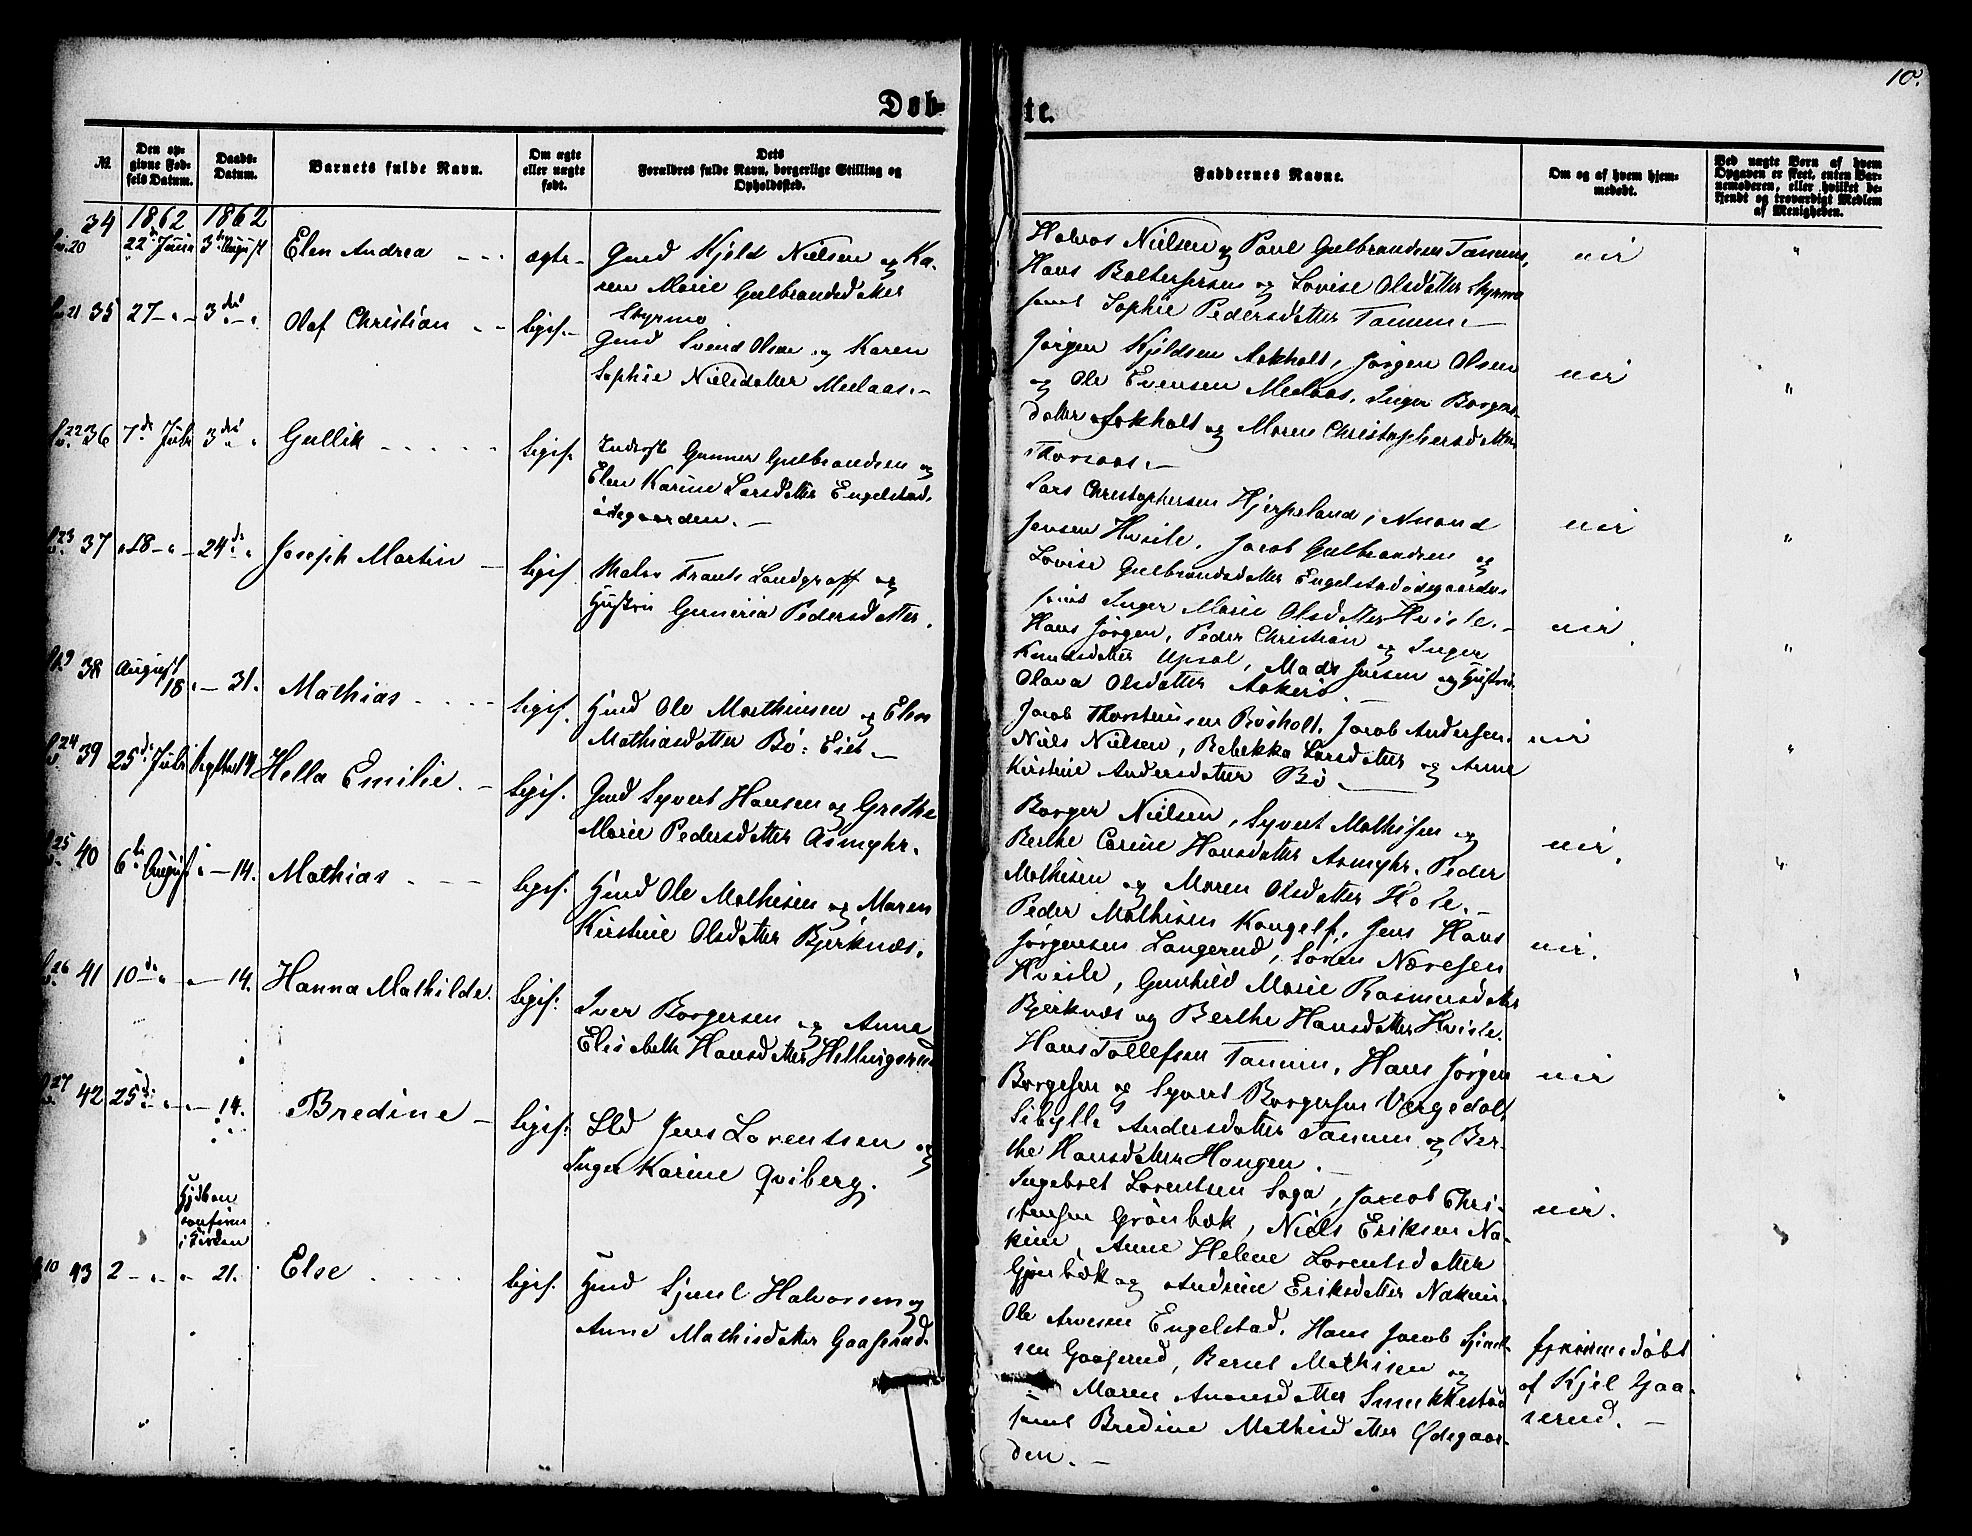 10.
Døb-
te.
№.
Den op-
givne Fød-
sels Datum.
Daabs-
Datum.
Barnets fulde Navn.
Om ægte
eller uægte
født.
Dets
Forældres fulde Navn, borgerlige Stilling og
Opholdssted.
Faddernes Navne.
Om og af hvem hjem-
medøbt.
Ved uægte Børn af hvem
Opgaven er skeet, enten Bar-
nemoderen, eller hvilket be-
kjendt og troværdigt Medlem
af Menigheden.
34 1862 1862
20 22 de Juni 3 die August Elen Andrea ægte
Gmd Kjeld Nielsen og Ka-
ren Marie Gulbrandsdatter
Styrmo.
Halvor Nielsen og Poul Gulbrandsen Tanum,
Hans Baltersersen og Lovise Olsdatter Styrmo
samt Sophie Pedersdatter Tanum.
nei "
21 35 27 - " - 3 die - " Olaf Christian ligis.
Gmd Svend Olsen og Karen
Sophie Nielsdatter Medaas.
Jørgen Kjeldsen Aokholt, Jørgen Olsen
og Ole Evensen Medaas, Inger Borgers-
datter Aokholt og Maren Christophersdatter
Thorsaas.
nei "
22 36 7 de Juli 3 die " Gullik ligis.
Inderst Gunner Gulbrandsen og
Elen Karine Larsdatter Engelstad-
ødegaarden.
Lars Christophersen Hjerpeland, Amand
Jansen Hvisle, Jacob Gulbrandsen og
Lovise Gulbrandsdatter Engelstadødegaarden
samt Inger Marie Olsdatter Hvisle.
nei "
23 37 18 - " - 24 de " Joseph Martin ligis.
Maler Frants Landgraff og
Hustru Guneria Pedersdatter.
Hans Jørgen, Peder Christian og Inger
Knudsdatter Upsal, Mads Jensen og Hustru
Olava Olsdatter Aakerø.
nei. "
19 38 August 18 " - 31. Mathias ligis.
Hmd Ole Marthinsen og Elen
Mathiasdatter Bø: Eiet
Jacob Thorstensen Bøsholt, Jacob Andersen,
Niels Nielsen, Rebekka Larsdatter og Anne
Kirstine Andersdatter Bø
nei "
24 39 25 de Juli Septbr 14 Hella Emilie. ligis.
Gmd Syvert Hansen og Grethe
Marie Pedersdatter Asmyhr.
Borger Nielsen, Syvert Mathisen og
Berthe Carine Hansdatter Asmyhr. Peder
Mathisen og Maren Olsdatter Hole.
nei. "
25 40 6 te August " - 14. Mathias ligis.
Hmd Ole Mathisen og Maren
Kirstine Olsdatter Bjerknæs.
Peder Mathisen Kongelf, Jens Hans
Jørgensen Langerud, Søren Næresen
Hvisle, Gunhild Marie Rasmusdatter
Bjerknæs og Berthe Hansdatter Hvisle.
nei.
26 41 10 de " " - 14. Hanna Mathilde. ligis.
Iver Borgersen og Anne
Elisabeth Hansdatter Hellingsrud
Hans Tollefsen Tanum, Hans Jørgen
Borgesen og Syvert Borgersen Vergedalt
Sibylle Andersdatter Tanum og Ber-
the Hansdatter Hougen.
nei
27 42 25 de " " - 14. Bredine ligis.
Sld Jens Lorentsen og
Inger Karine Qviberg.
Ingebret Lorentsen Saga, Jacob Chri-
stensen Grønbæk, Niels Eriksen Na-
kim, Anne Helene Lorentsdatter
Grønbæk og Andrine Eriksdatter Nakim.
nei.
Hjdbøn
confirm
i Kirken
10 43 2 - " - " 21. Else ligis.
Hmd Sjuul Halvorsen og
Anne Mathisdatter Gaaserud
Ole Arvesen Engelstad, Hans Jacob Sjuul-
sen Gaaserud, Bernt Mathisen og
Maren Amonsdatter Smukkestad
samt Bredine Mathisdatter Ødegaar-
den.
hjemmedøbt
af Kjel Gaa-
serud.